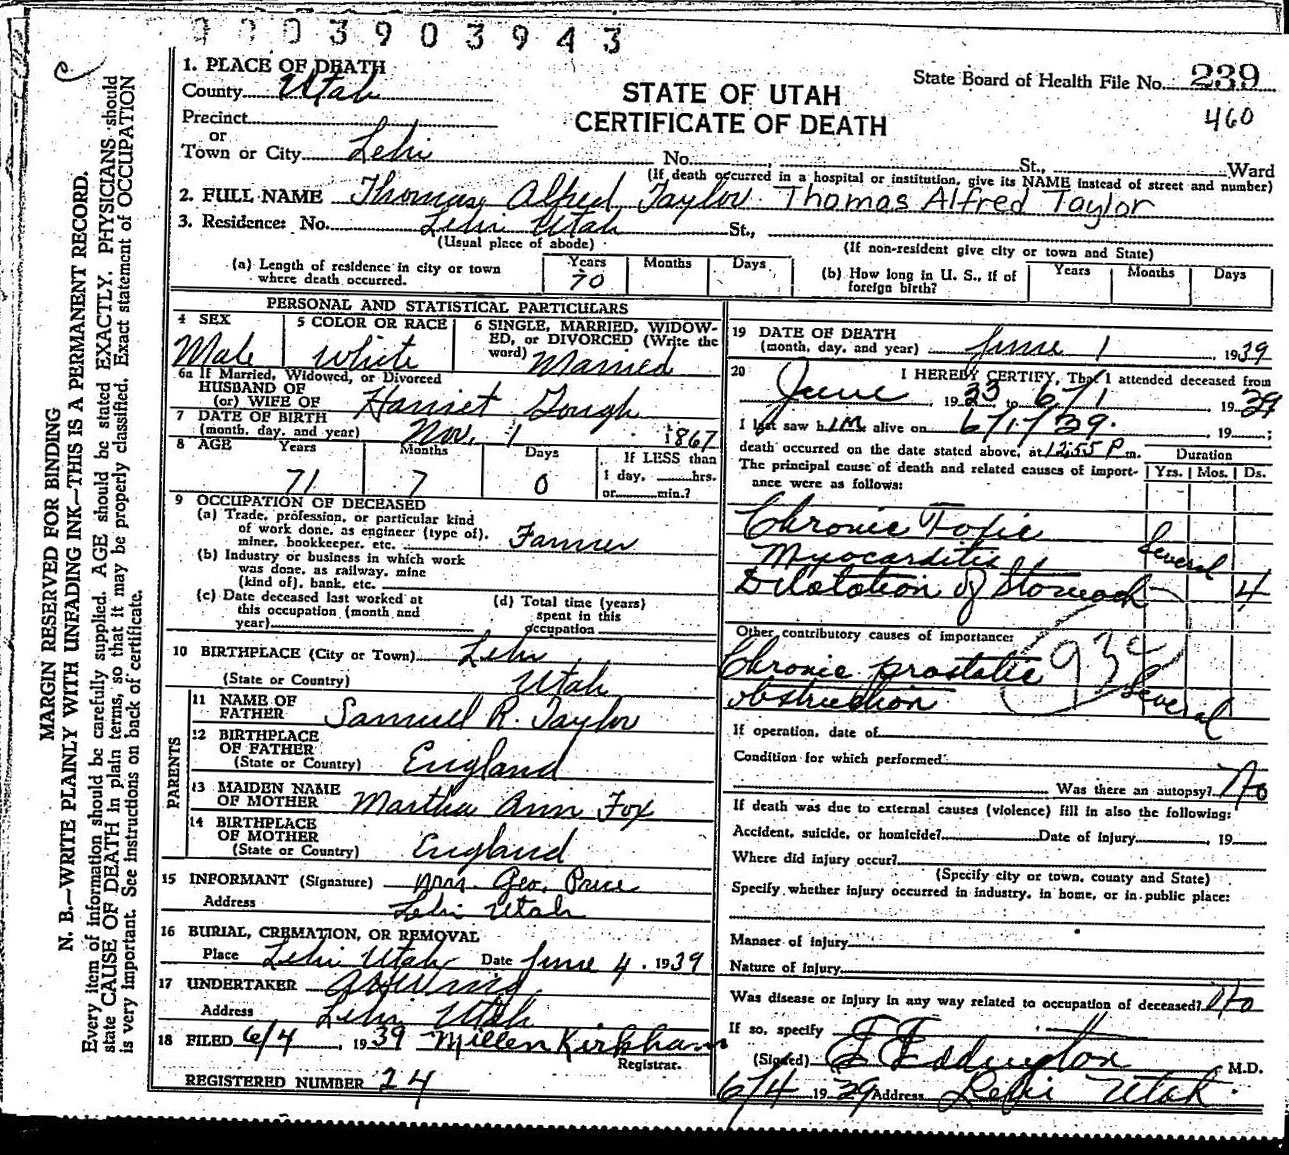 0003903943
1. PLACE OF DEATH
County Utah
State Board of Health File No. 239
STATE OF UTAH
460
Precinct
CERTIFICATE OF DEATH
or
Town or City Lehi No. St., Ward
(If death occurred in a hospital or institution, give its NAME instead of street and number)
2. FULL NAME Thomas Alfred Taylor Thomas Alfred Taylor
3. Residence: No. Lehi Utah St.,
(Usual place of abode) (If non-resident give city or town and State)
(a) Length of residence in city or town where death occurred. Years 70 Months Days
(b) How long in U. S., if of foreign birth? Years Months Days
PERSONAL AND STATISTICAL PARTICULARS
4 SEX Male
5 COLOR OR RACE White
6 SINGLE, MARRIED, WIDOW-
ED, or DIVORCED (Write the
word) Married
6a If Married, Widowed, or Divorced
HUSBAND OF
(or) WIFE OF Harriet Gough
7 DATE OF BIRTH
(month, day, and year) Nov. 1 1867
8 AGE Years 71 Months 7 Days 0
If LESS than
1 day, hrs.
or min.?
9 OCCUPATION OF DECEASED
(a) Trade, profession, or particular kind
of work done, as engineer (type of),
miner, bookkeeper, etc. Farmer
(b) Industry or business in which work
was done, as railway, mine
(kind of), bank, etc.
(c) Date deceased last worked at
this occupation (month and
year)
(d) Total time (years)
spent in this
occupation
10 BIRTHPLACE (City or Town) Lehi
(State or Country) Utah
PARENTS
11 NAME OF
FATHER Samuel R. Taylor
12 BIRTHPLACE
OF FATHER
(State or Country) England
13 MAIDEN NAME
OF MOTHER Martha Ann Fox
14 BIRTHPLACE
OF MOTHER
(State or Country) England
15 INFORMANT (Signature) Mrs. Geo. Price
Address Lehi Utah
16 BURIAL, CREMATION, OR REMOVAL
Place Lehi Utah Date June 4, 1939
17 UNDERTAKER
Address Lehi Utah
18 FILED 6/4, 1939 Millen Kirkham
Registrar.
REGISTERED NUMBER 24
19 DATE OF DEATH
(month, day, and year) June 1, 1939
20 I HEREBY CERTIFY, That I attended deceased from
June, 1933 to 6/1 1939
I last saw him alive on 6/1/39., 19 ;
death occurred on the date stated above, at 12:55 P m.
The principal cause of death and related causes of import-
ance were as follows:
Duration
Yrs. Mos. Ds.
Chronic Toxic
Myocarditis Several
Dilatation of Stomach 4
Other contributory causes of importance:
93c
Chronic prostatic
obstruction Several
If operation, date of
Condition for which performed
Was there an autopsy? No
If death was due to external causes (violence) fill in also the following:
Accident, suicide, or homicide? Date of injury , 19
Where did injury occur?
(Specify city or town, county and State)
Specify whether injury occurred in industry, in home, or in public place:
Manner of injury
Nature of injury
Was disease or injury in any way related to occupation of deceased? No
If so, specify
(Signed) E Eddington M.D.
6/4 1939 Address Lehi Utah.
MARGIN RESERVED FOR BINDING
N. B.—WRITE PLAINLY WITH UNFADING INK—THIS IS A PERMANENT RECORD.
Every item of information should be carefully supplied. AGE should be stated EXACTLY. PHYSICIANS should
state CAUSE OF DEATH in plain terms, so that it may be properly classified. Exact statement of OCCUPATION
is very important. See instructions on back of certificate.